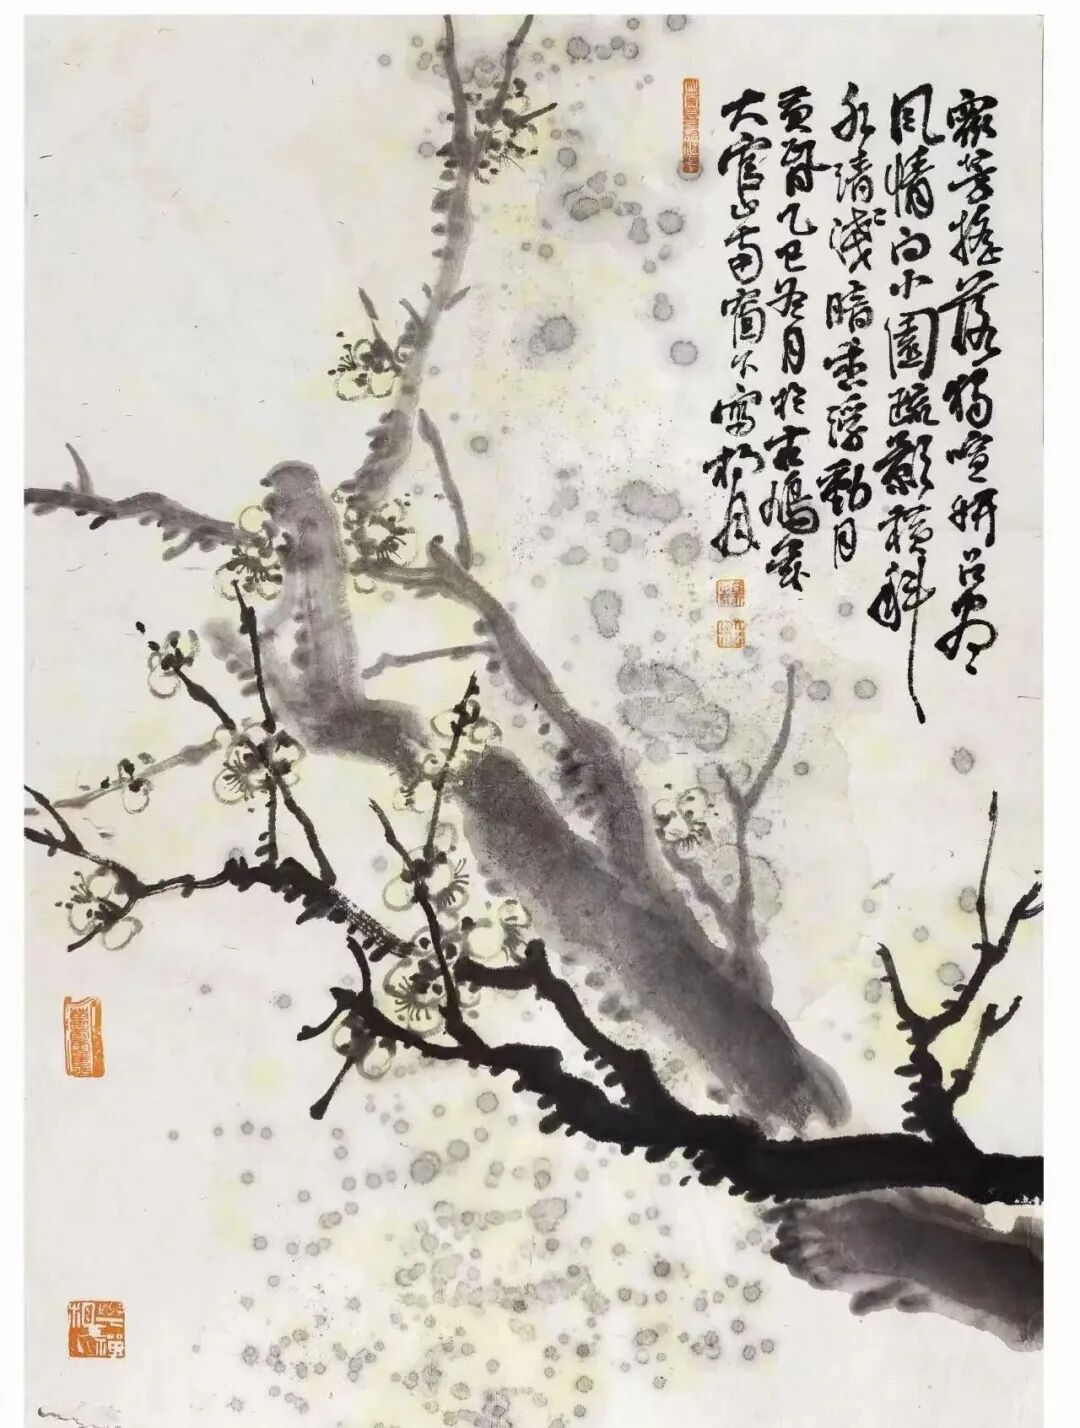 眾芳搖落獨喧妍占盡
風情向小園疏影橫斜
水清淺暗香浮動月
黃昏乙巳冬月於古鳩茲
大官山南窗下寫